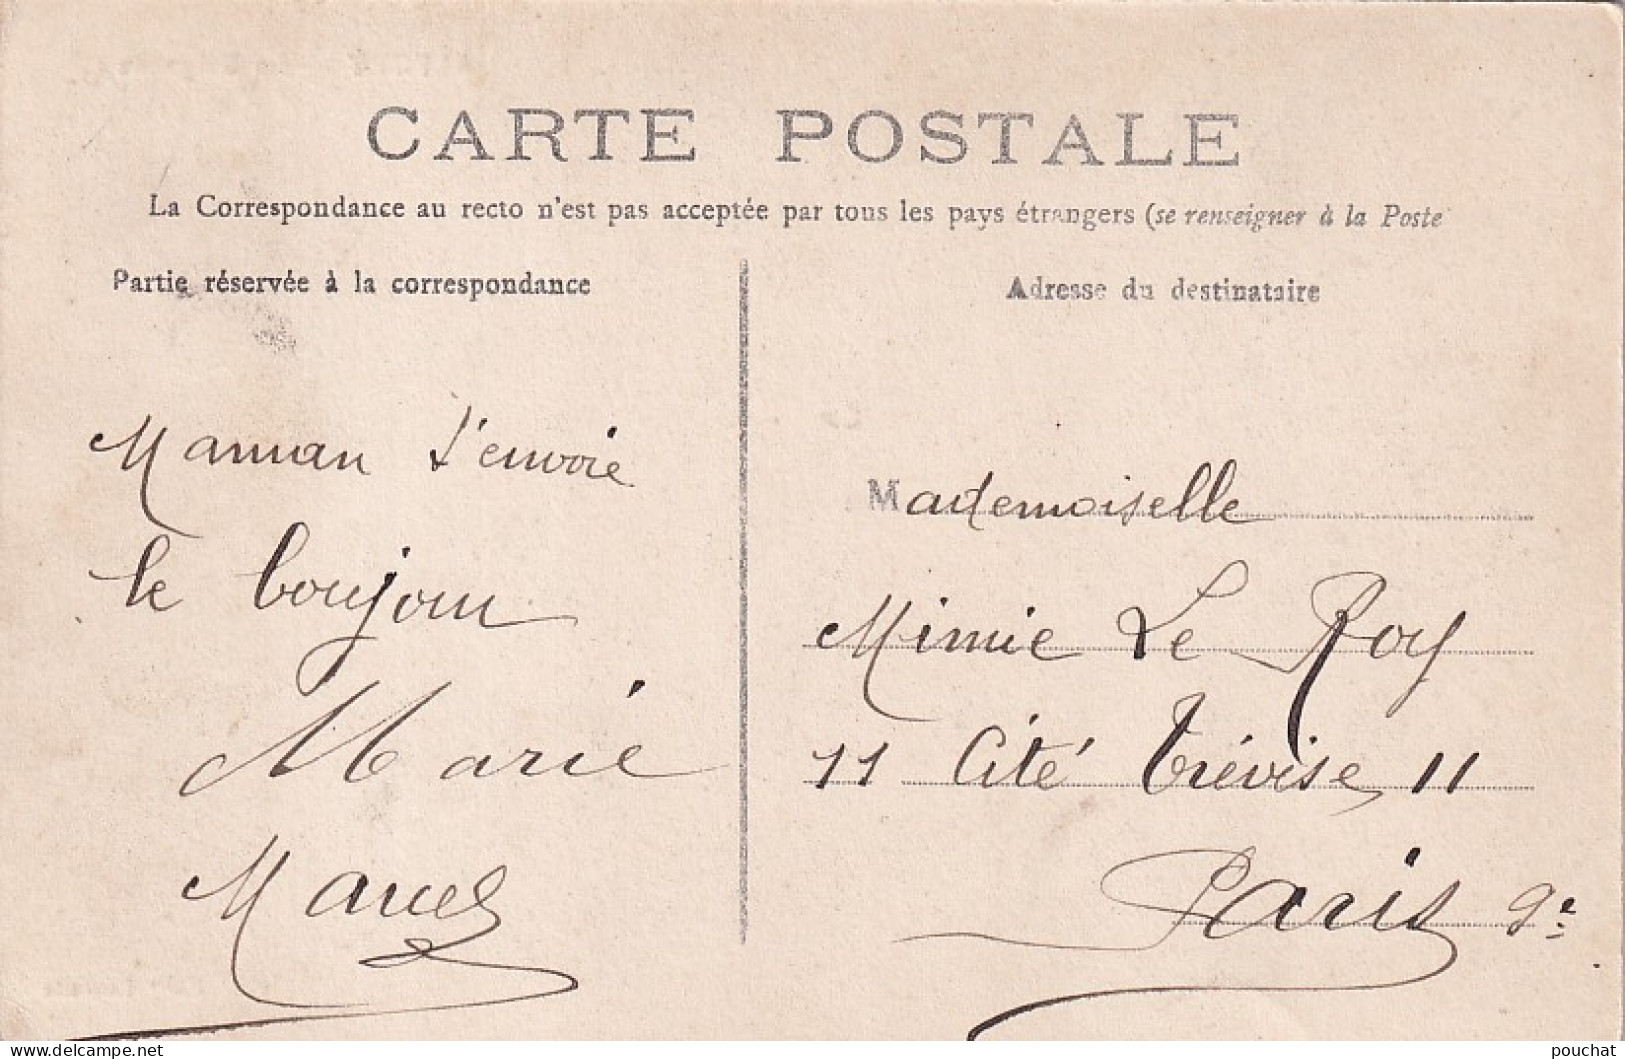 CARTE POSTALE
La Correspondance au recto n'est pas acceptée par tous les pays étrangers (se renseigner à la Poste
Partie réservée à la correspondance
Maman t'envoie
le boujour
Marie
Marcel
Adresse du destinataire
Mademoiselle
Mimie Le Roy
11 Cité Trévise, 11
Paris 9e
pouchat